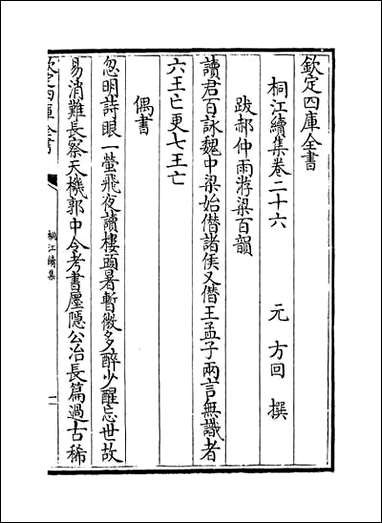 欽定四庫全書
桐江續集卷二十六
元 方回 撰
跋郝仲雨游梁百韻
讀君百詠魏中梁始僭諸侯又僭王孟子兩言無識者
六王亡更七王亡
偶書
忽明詩眼一螢飛夜讀樓頭暑暫微多醉少醒忘世故
易消難長察天機郭中令考書屢隱公冶長篇過古稀
欽定四庫全書
桐江續集
一